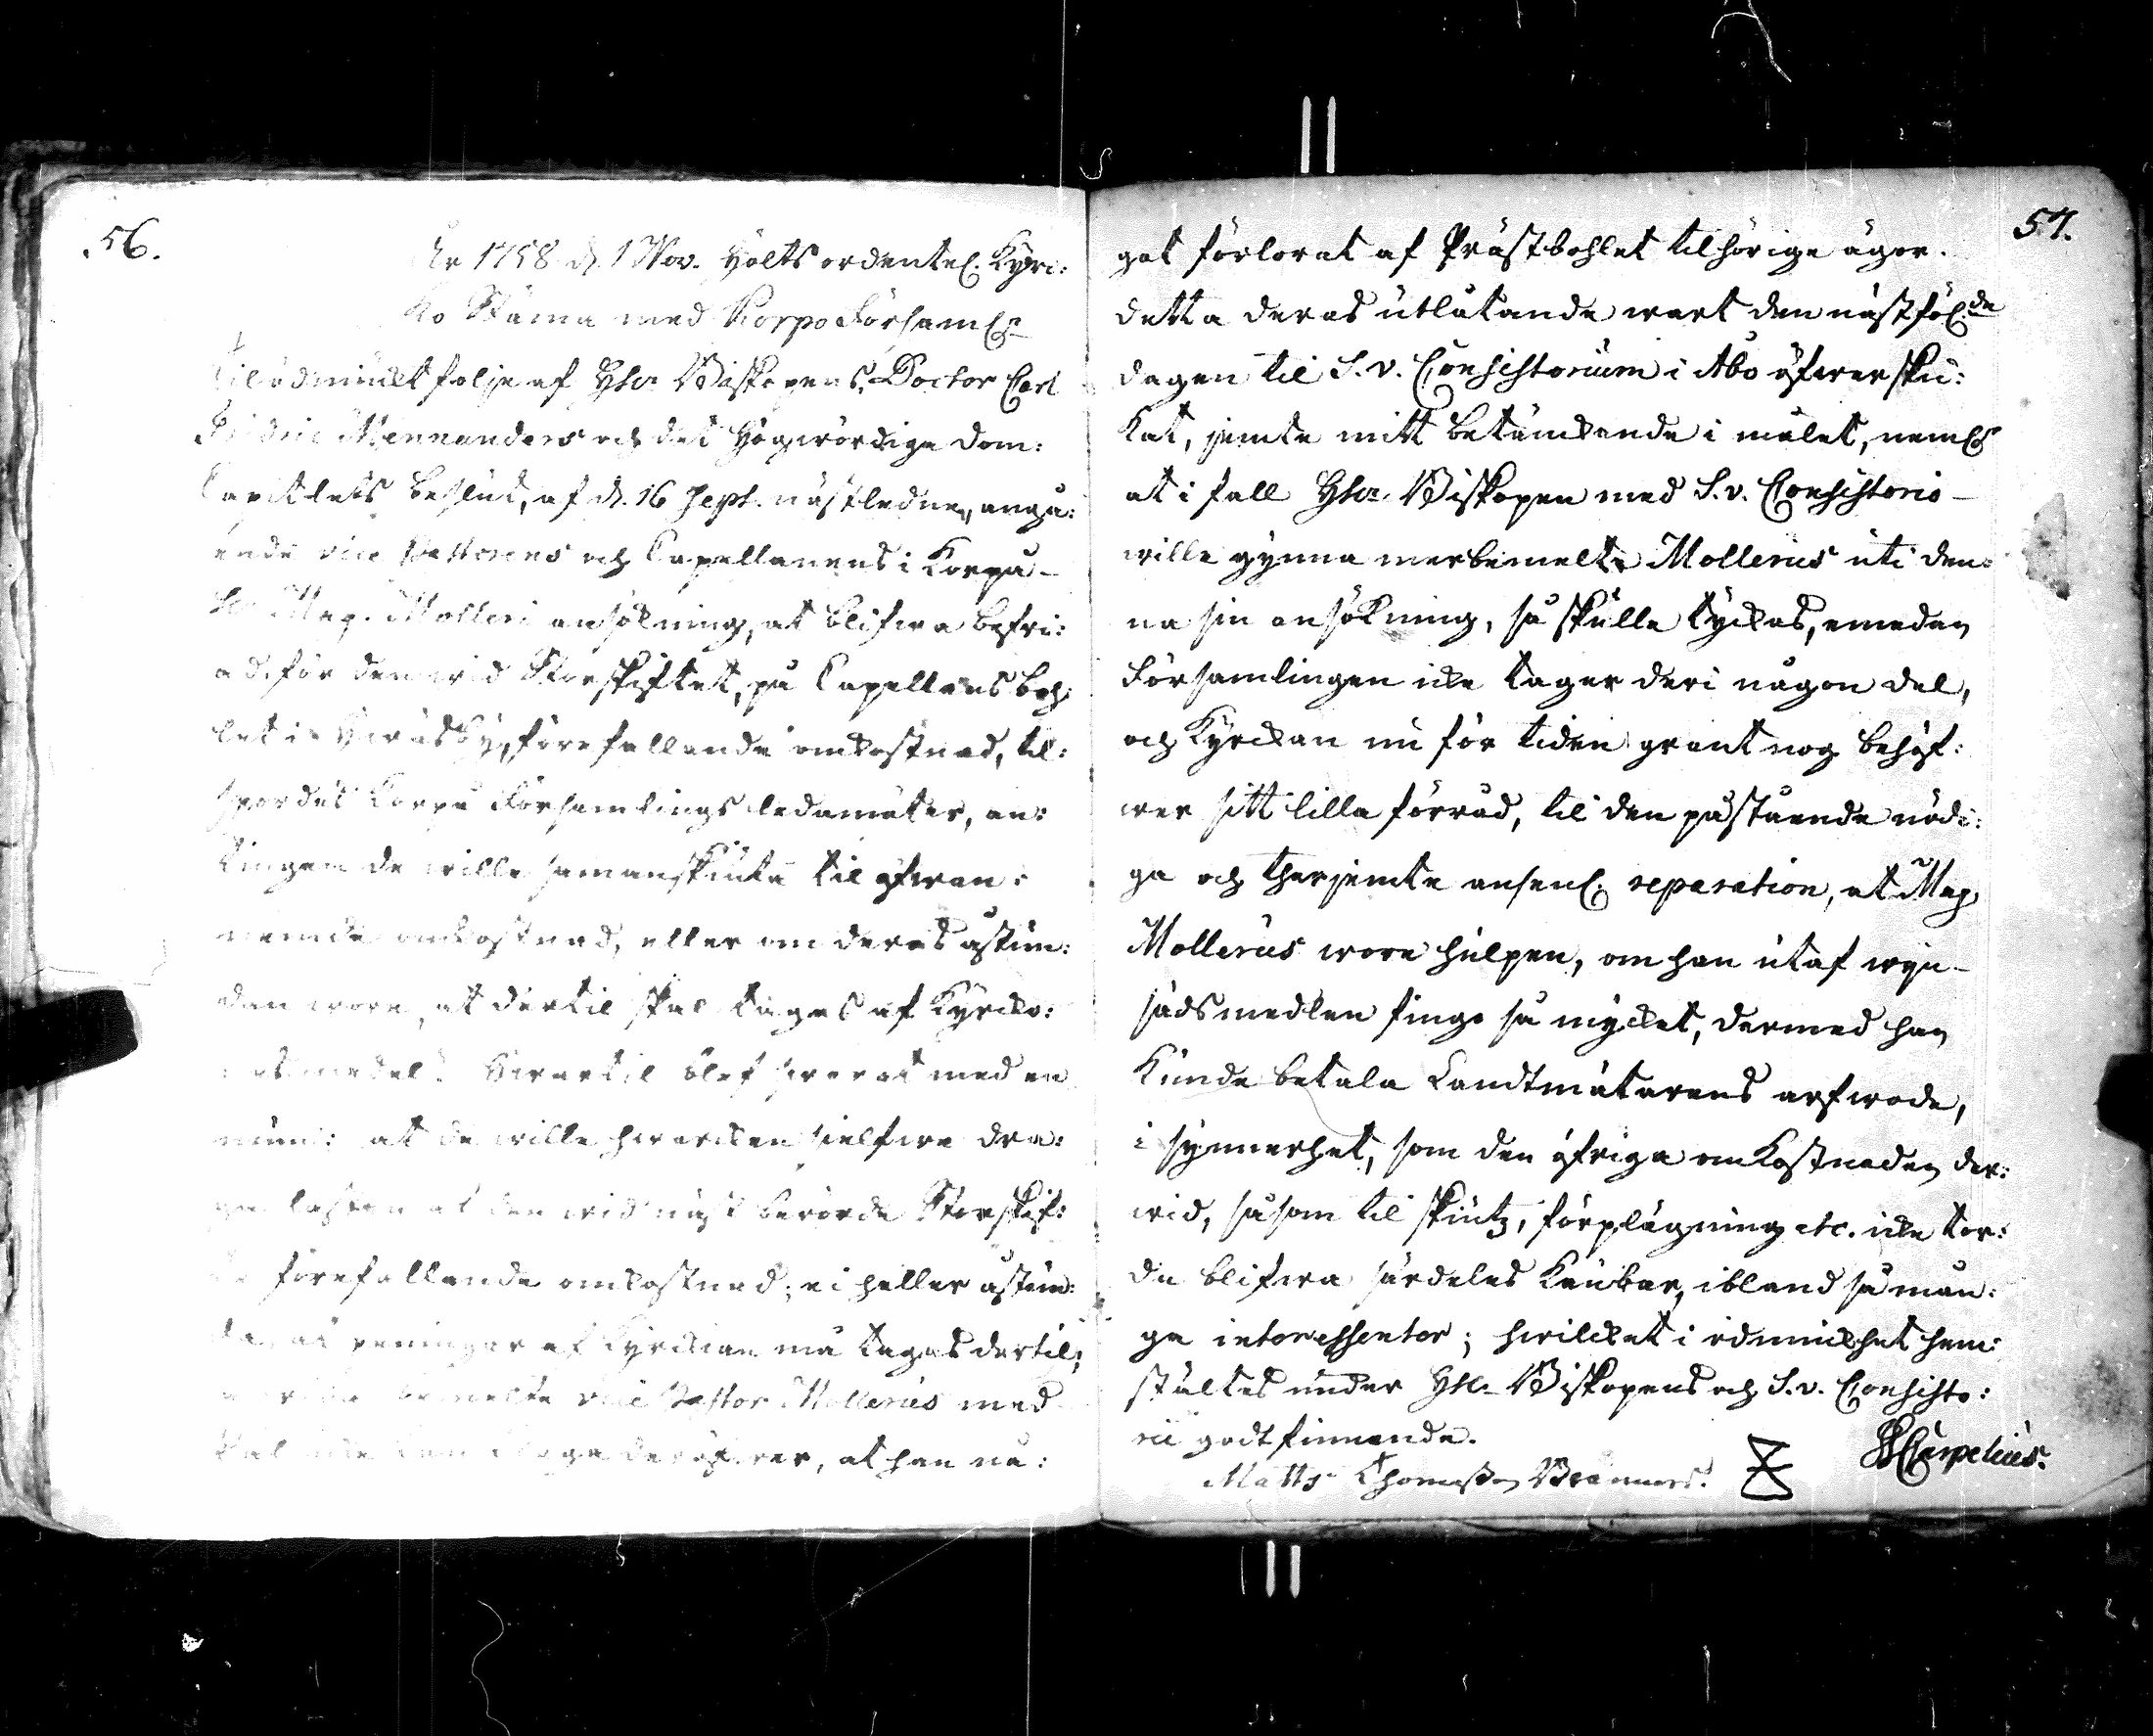 56.
År 1758 d. 1 Nov. Hölts ordentel. Kyrc:
ko Stäma med Korpo Församl:
til ödmiukt folje af Hhr Biskopens, Doctor Carl
Fridric Mennanders och det Högwördige Dom:
Capitlets beslut, af d. 16 Sept. nästledne, angå:
ende vice Pastorens och Capellanens i Korpå
Hr Mag. Molleri ansökning, at blifwa befri:
ad för den wid Storskiftet, på Capellans boh:
let i förefallande omkostnad, til:
spordes Korpo Församlings ledamöter, an:
tingen de wille samanskiuta til ofwan:
nemde omkostnad, eller om deras åstun:
dan wore, at dertil skal tagas af Kyrcko:
nes medel? Hwartil blef swarat med en
mund: at de wille hwarcken sielfwe dra:
ga lasten af den wid näst berörde Storskif:
te förefallande omkostnad; ei heller åstun:
da, at peninger af Kyrckian må tagas dertil;
bemelte vice Pastor Mollerus med
skal icke kan klaga deröfwer, at han nå:
57.
got förlorat af Prästbohlet tilhörige ägor.
detta deras utlåtande wart den nästföl.de
dagen til S. v. Consistorium i Åbo öfwerskic:
kat, jemte mitt betänckande i målet, neml.
at i fall Hhr Biskopen med S. v. Consistorio
wille gynna merbemelte Mollerus uti den:
na sin ansökning, så skulle tyckas, emedan
Församlingen icke tager deri någon del,
och Kyrckan nu för tiden grant nog behöf:
wer sitt lilla förråd, til den påstående nödi:
ga och therjemte ansenl. reparation, at Mag
Mollerus wore hulpen, om han utaf wyn-
sädsmedlen finge så mycket, dermed han
kunde betala Landtmätarens arfwode,
i synnerhet, som den öfriga omkostnaden der:
wid, såsom til skiutz, förplägning etc. icke tor:
de blifwa särdeles känbar, ibland så mån:
ge interessenter; hwilcket i ödmiukhet hem:
stältes under Hhr Biskopens och S. v. Consisto:
rii godtfinnande.
Matts Thomasson Brännars.